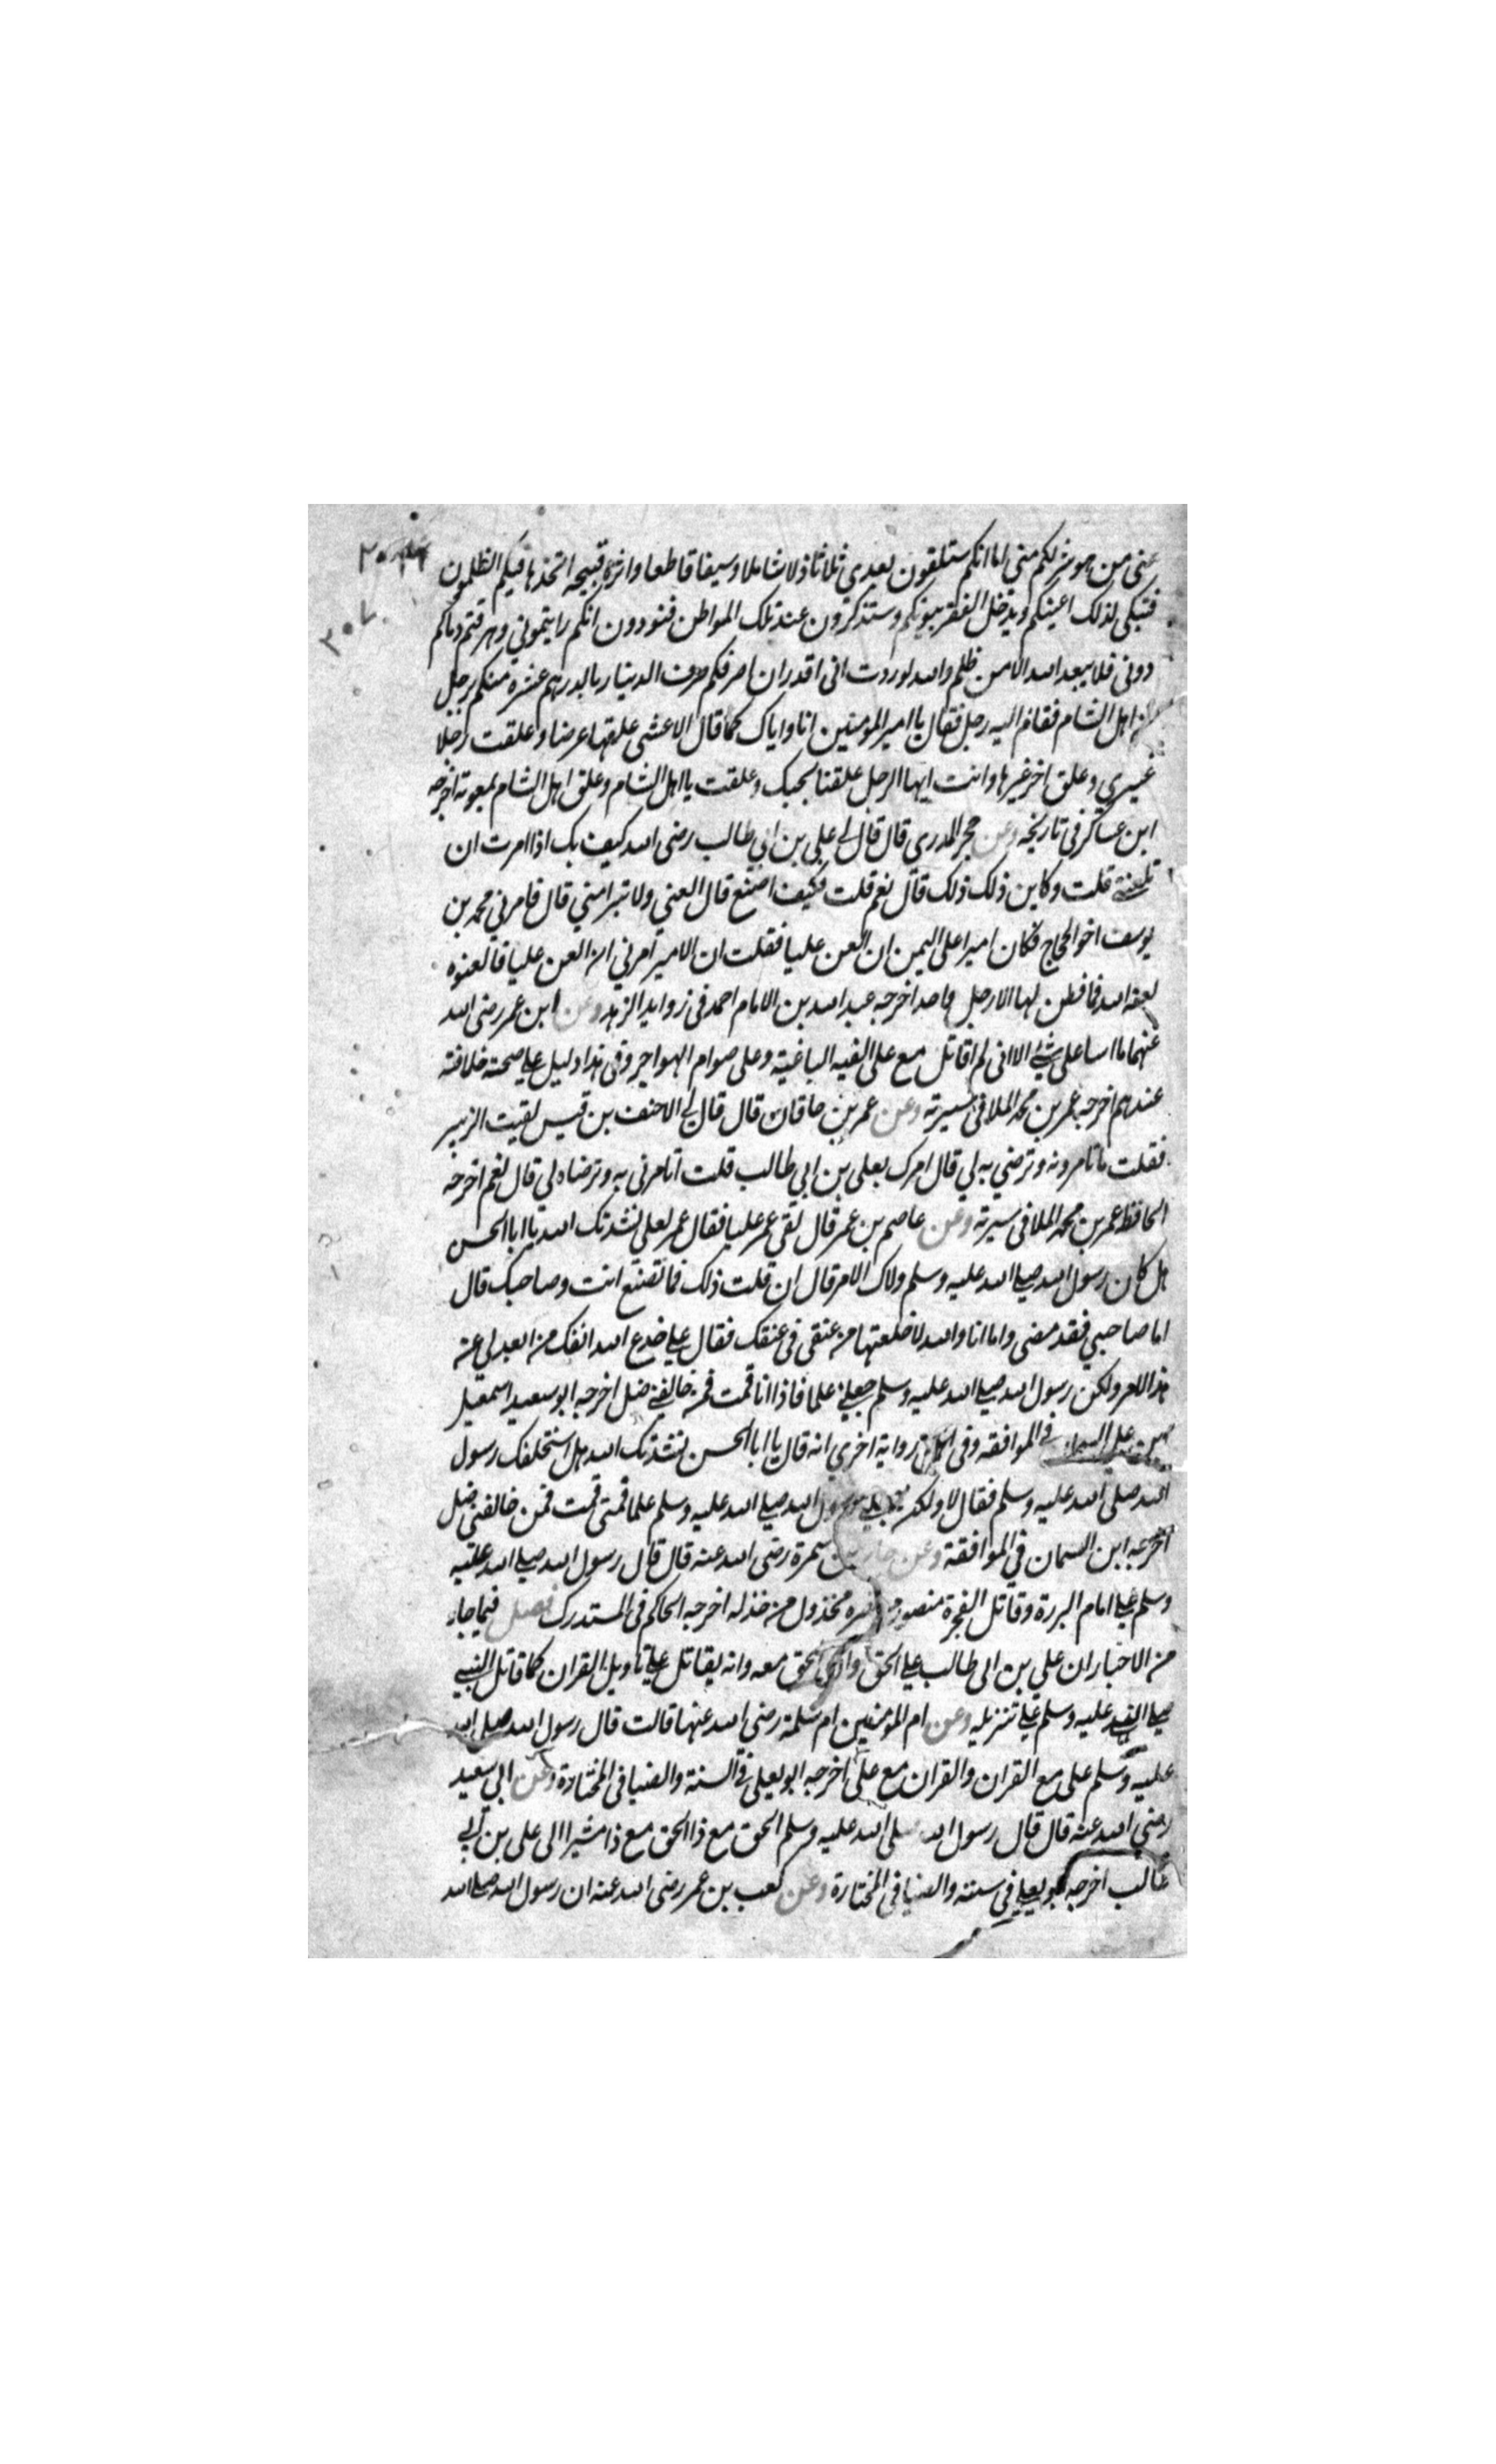 عني من هو شر لكم مني اما انكم ستلقون بعدي ثلاثا ذلا شاملا وسيفا قاطعا واثرة قبيحه اتخذها فيكم الظلمون
فتبكى لذلك اعينكم ويدخل الفقر بيوتكم وستذكرون عند تلك المواطن فتودون انكم رايتموني وهرقتم دماكم
دونى فلا يبعد الله الا من ظلم والله لوددت انى اقدر ان اصرفكم صرف الدينار بالدرهم عشره منكم برجل
من اهل الشام فقام اليه رجل فقال يا امير المومنين انا واياك كما قال الاعشى علقتها عرضا وعلقت رجلا
غيري وعلق اخر غيرها وانت ايها الرجل علقنا بحبك وعلقت يا اهل الشام وعلق اهل الشام بمعوية اخرجه
ابن عساكر فى تاريخه وعن حجر المدرى قال قال لي على بن ابي طالب رضى الله كيف بك اذا امرت ان
تلعننى قلت وكاين ذلك ذلك قال نعم قلت فكيف اصنع قال العني ولا تبرا مني قال فامرني محمد بن
يوسف اخو الحجاج فكان اميرا على اليمن ان العن عليا فقلت ان الامير امرني ان العن عليا فالعنوه
لعنه الله فما فطن لها الا رجل واحد اخرجه عبد الله بن الامام احمد فى زوايد الزهد وعن ابن عمر رضى الله
عنهما ما اسا على شئ الا انى لم اقاتل مع على الفيه الباغية وعلى صوام الهواجر وفى هذا دليل على صحة خلافته
عندهم اخرجه عمر بن محمد الملا فى سيرته وعن عمر بن خاقان قال قال لي الاحنف بن قيس لقيت الزبير
فقلت ما تامرونه وترضي به لي قال امرك بعلى بن ابي طالب قلت اتامرنى به وترضاه لي قال نعم اخرجه
الحافظ عمر بن محمد الملا فى سيرته وعن عاصم بن عمر قال لقي عمر عليا فقال عمر لعلى نشدتك الله يا ابا الحسن
هل كان رسول الله صلى الله عليه وسلم ولاك الامر قال ان قلت ذلك فما تصنع انت وصاحبك قال
اما صاحبي فقد مضى واما انا والله لاخلعتها من عنقى فى عنقك فقال على جدع الله انفك من ابعدلي عن
هذا الامر ولكن رسول الله صلى الله عليه وسلم جعلنى علما فاذا انا قمت فمن خالفنى ضل اخرجه ابو سعيد اسمعيل
بن على السمان فى الموافقه وفى رواية اخرى انه قال يا ابا الحسن نشدتك الله هل استخلفك رسول
الله صلى الله عليه وسلم فقال لا ولكن جعلنى رسول الله صلى الله عليه وسلم علما فمتى قمت فمن خالفنى ضل
اخرجه ابن السمان في الموافقة وعن جابر بن سمرة رضى الله عنه قال قال رسول الله صلى الله عليه
وسلم على امام البررة وقاتل الفجرة منصور من نصره مخذول من خذله اخرجه الحاكم فى المستدرك فصل فيما جاء
من الاخبار ان على بن ابى طالب على الحق والحق معه وانه يقاتل على تاويل القران كما قاتل النبى
صلى الله عليه وسلم على تنزيله وعن ام المومنين ام سلمة رضي الله عنها قالت قال رسول الله صلى الله
عليه وسلم على مع القران والقران مع على اخرجه ابو يعلى فى السنة والضيا فى المختارة وعن ابي سعيد
رضي الله عنه قال قال رسول الله صلى الله عليه وسلم الحق مع ذا الحق مع ذا مشيرا الى على بن ابى
طالب اخرجه ابو يعلى فى سننه والضيا فى المختارة وعن كعب بن عمر رضى الله عنه ان رسول الله صلى الله